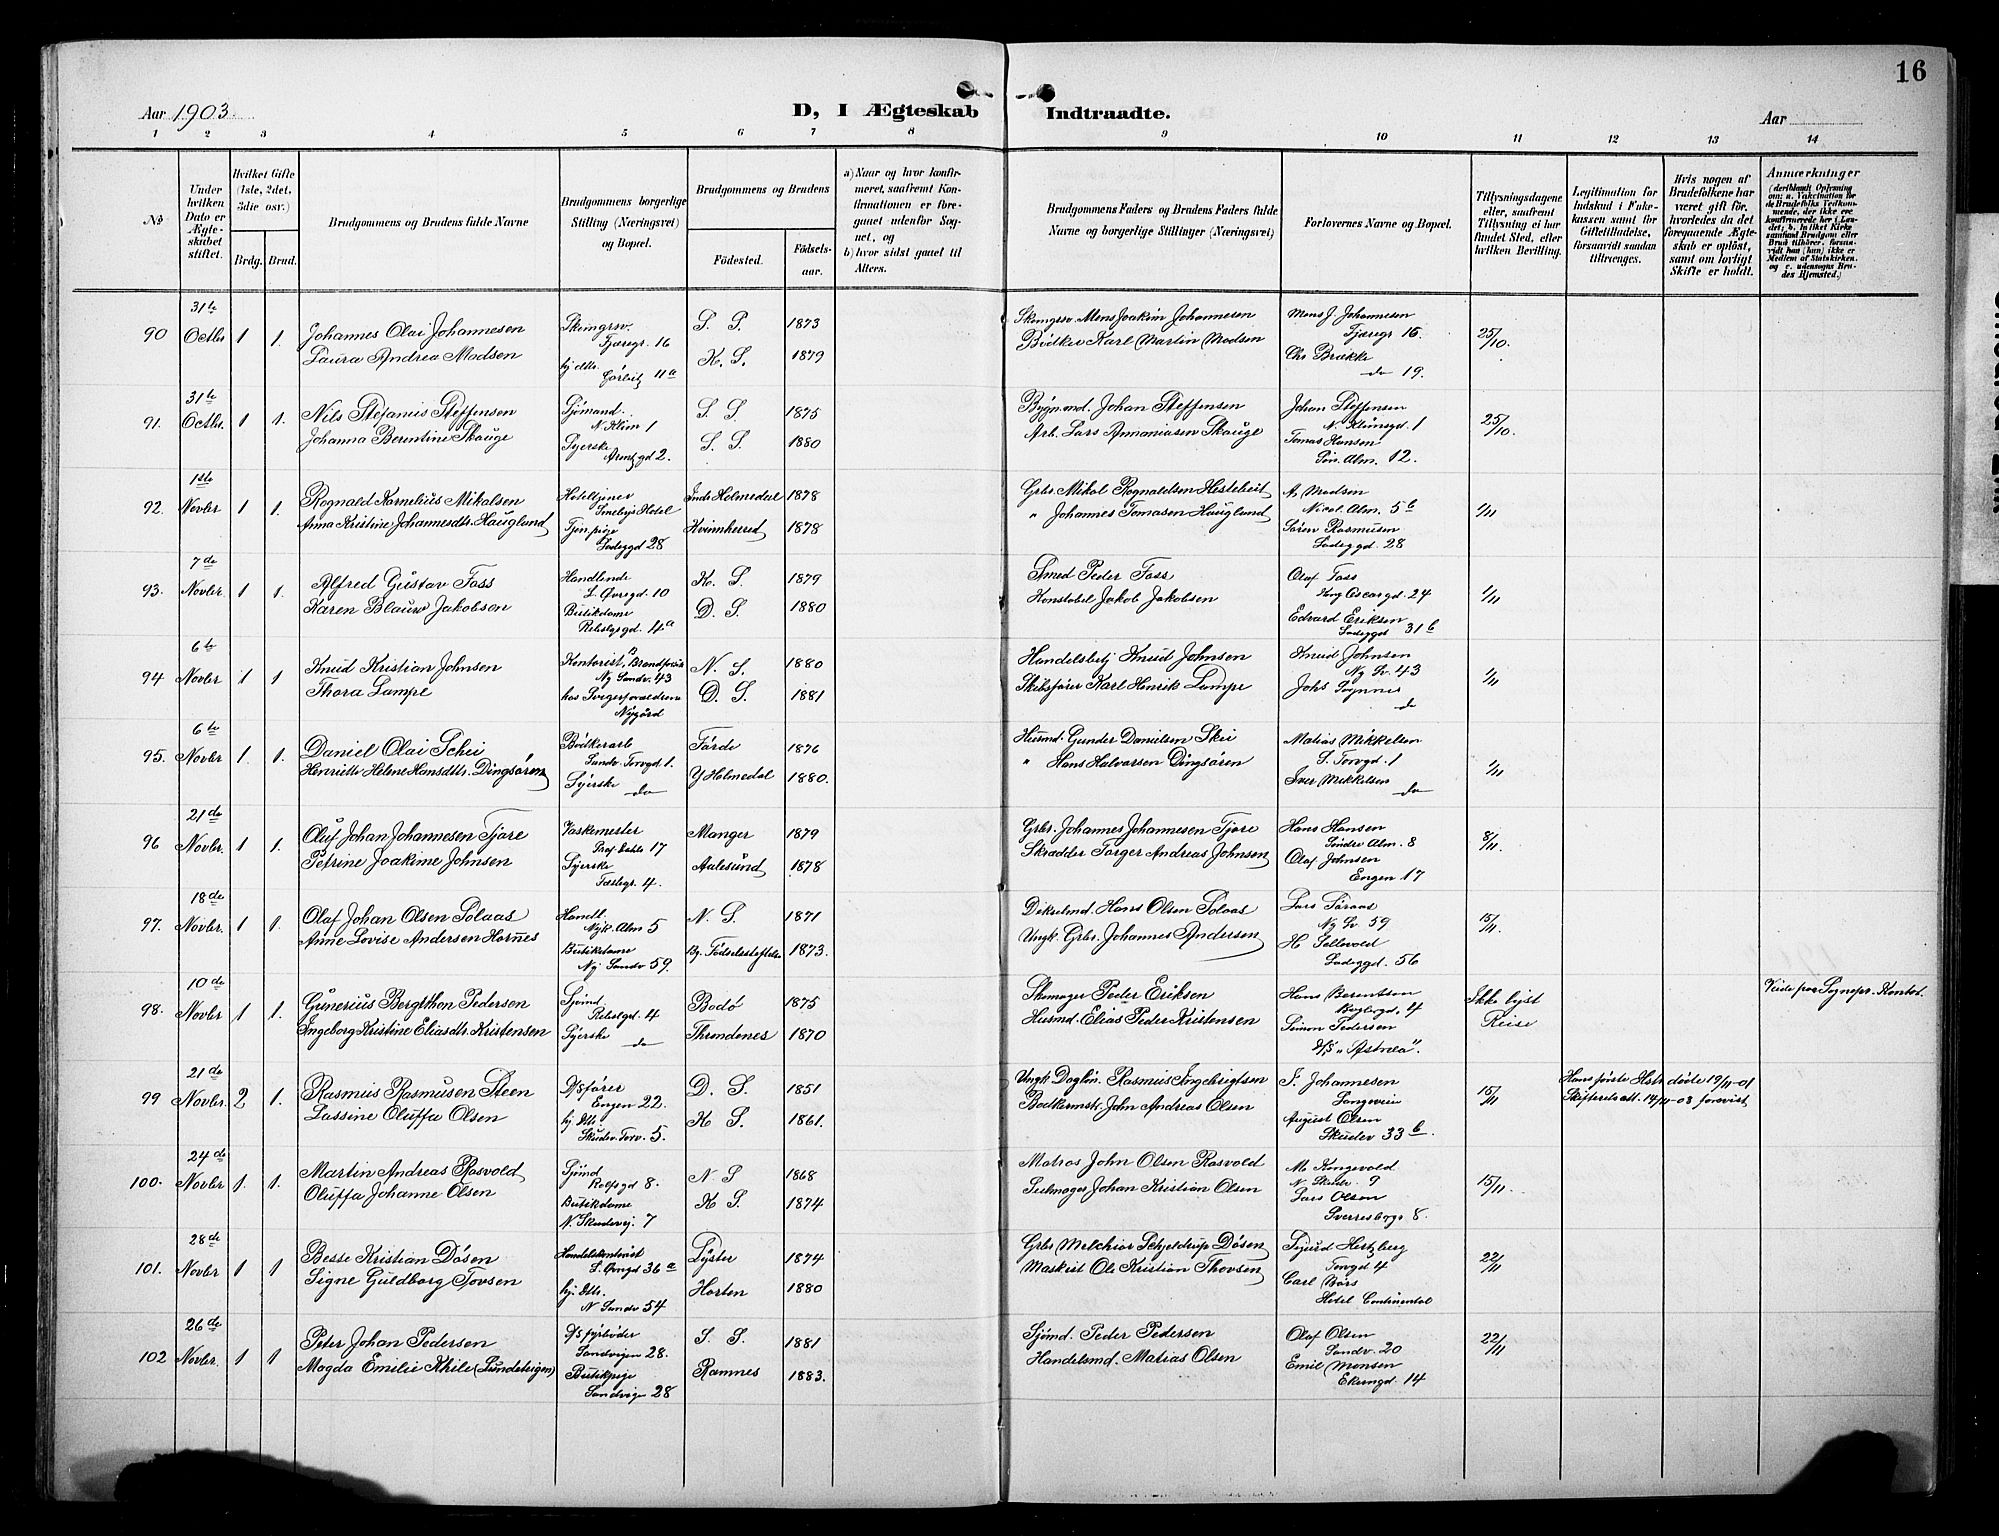 16
Aar 1903.
D, I Ægteskab Indtraadte.
Aar
1 2 3 4 5 6 7 8 9 10 11 12 13 14
№
Under hvilken Dato er Ægteskabet stiftet.
Hvilket Gifte (1ste, 2det, 3die osv.)
Brdg. Brud.
Brudgommens og Brudens fulde Navne
Brudgommens borgerlige Stilling (Næringsvei) og Bopæl.
Brudgommens og Brudens
Fødested.
Fødselsaar.
a) Naar og hvor konfirmeret, saafremt Konfirmationen er foregaaet udenfor Sognet, og
b) hvor sidst gaaet til Alters.
Brudgommens Faders og Brudens Faders fulde Navne og borgerlige Stillinger (Næringsvei)
Forlovernes Navne og Bopæl.
Tillysningsdagene eller, saafremt Tillysning ei har fundet Sted, efter hvilken Bevilling.
Legitimation for Indskud i Enkekassen samt for Giftetilladelse, forsaavidt saadan tiltrænges.
Hvis nogen af Brudefolkene har været gift før, hvorledes da det foregaaende Ægteskab er opløst, samt om lovligt Skifte er holdt.
Anmærkninger
90 31te Octbr 1 1.
Johannes Olai Johannesen
Laura Andrea Madsen
Tjæregr. 16
11a
S. S. 1873
K. S. 1879
Mons Joakim Johannesen
Bødker Karl Martin Madsen
Mons J. Johannesen
Tjæregr 16.
Chr Brække
do 19.
25/10.
91. 31te Octbr. 1 1.
Nils Stefanus Steffensen
Johanna Berentine Skauge
Sjømand.
N. Klein 1
Syerske
2.
S. S 1875
S. S 1880
Bygnmd. Johan Steffensen
Arb. Lars Annaniasen Skauge
Johan Steffensen
1
Tomas Hansen
Alm. 12.
25/10.
92. 1ste Novbr 1 1.
Rognald Kornelius Mikalsen
Anna Kristine Johannesdtr. Hauglund
Hoteltjener
Smebys Hotel
Tjen.pige
Ladeggd 28
Indre Holmedal 1878
Kvinnherred 1878
Grbr. Mikal Rognaldsen Hestebeit
" Johannes Tomasen Hauglund
A. Madsen
Nicol. Alm. 5b
Søren Rasmusen
Ladeggd. 28
1/11
93. 7de Novbr. 1 1.
Alfred Gustav Foss
Karen Blauw Jakobson
Handlende
L. Øvregd. 10
Butikdame
Rebslgrgd. 4a
K. S 1879
D. S 1880
Smed Peder Foss
Konstabel Jakob Jakobsen
Olaf Foss
Kong Oscarsgd. 24
Edvard Eriksen
Ladeggd 31b
1/11
94 6te Novbr 1 1
Knud Kristian Johnsen
Thora Lampe
Ny Sandv. 43
hos Svigerforældrene
Nygård
N. S. 1880
D. S. 1881
Handelsbetj Knud Johnsen
Skibsfører Karl Henrik Lampe
Knud Johnsen
Ny Sv. 43
Johs Sognnes
do
1/11
95. 6te Novbr 1 1.
Daniel Olai Schei
Henriette Helene Hansdtr. Dingsøren
Bødkerarb
Sandv. Torvgd. 1.
Syerske do
Førde 1876
Y Holmedal 1880.
Husmd. Gunder Danielsen Skei
" Hans Halvorsen Dingsøren
Matias Mikkelsen
S. Torvgd. 1
Iver Mikkelsen
do
1/11
96 21de Novbr. 1 1.
Oluf Johan Johannesen Tjore
Petrine Joakime Johnsen
Vaskemester
Prof. Dahls 17
Syerske
4.
Manger 1879
Aalesund 1878
Grbr. Johannes Johannesen Tjore
Skrædder Torger Andreas Johnsen
Hans Hansen
Søndre Alm. 8
Olaf Johnsen
Engen 17
8/11
97. 18de Novbr. 1 1.
Olaf Johan Olsen Solaas
Anne Lovise Andersen Hornes
Handl.
Nyk. Alm 5
Butikdame
Ny. Sandv 59.
N. S. 1871
By. Fødselsstiftelse 1873.
Dikselmd. Hans Olsen Solaas
Ungk. Grbr. Johannes Andersen
Ny Sv 59
H. Sellevold
Ladeggd. 56
15/11
98. 10de Novbr 1 1.
Gunerius Bergithon Pedersen
Ingeborg Kristine Eliasdtr. Kristensen
Sjømd.
Rebslgd. 4
Syerske do
Bodø 1875
Throndenes 1870
Skomager Peder Eriksen
Husmd. Elias Peder Kristensen
Hans Berentsen
4
Simon Pedersen
D/S "Astræa".
Ikke lyst
Reise
Viede paa Sognepr. Kontor.
99 21de Novbr. 2 1.
Rasmus Rasmusen Steen
Lassine Oluffa Olsen
D/sfører
Engen 22.
hj. Dtr.
Skudev. Torv. 5.
D. S. 1851
K S. 1861.
Ungk Dagløn. Rasmus Ingebrigtsen
Bødkermstr. John Andreas Olsen
J. Johannesen
Langeveien
August Olsen
Skudev 33b.
15/11
Hans første Hstr døde 19/11-01
Skifteratt. 14/11-03 forevist
100. 24de Novbr 1. 1.
Martin Andreas Rosvold
Oluffa Johanne Olsen
Sjømd
Rolfsgd 8.
Butikdame
N. Skudevj. 7
N. S 1868
K S 1874
Matros John Olsen Rosvold
Seilmager Johan Kristian Olsen
M. Kongevold
N. Skudev 9
Lars Olsen
Sverresborg 8.
15/11
101. 28de Novbr 1 1
Besse Kristian Døsen
Signe Guldborg Tovsen
Handelskontorist
L. Øvregd 36a
hj. Dtr.
N Sandv 54
Lyster 1874
Horten 1880
Grbr Melchior Schjelderup Døsen
Maskist Ole Kristian Thovsen
Sjurd Hertzberg
Torvgd 4
Carl Børs
Hotel Continental
22/11
102 26de Novbr. 1 1
Peter Johan Pedersen
Magda Emilie Khile (Lundebergen)
D/s fyrbøder
Sandvigen 28.
Butikpige
Sandvigen 28
S. S. 1881
Ramnes 1883.
Sjømd. Peder Pedersen
Handelsmd. Matias Olsen
Olaf Olsen
Sandv. 20
Emil Monsen
Ekrengd. 14
22/11